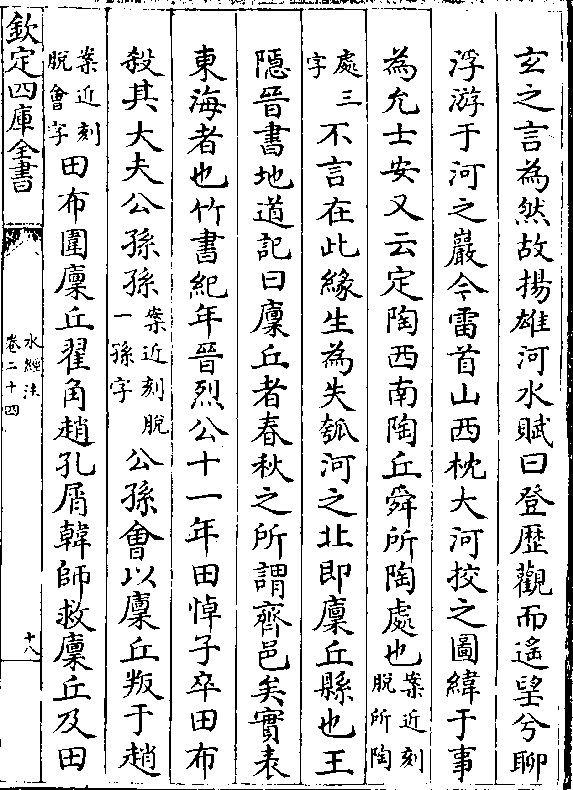 玄之言為然故揚雄河水賦曰登歴觀而遙望兮聊
浮游于河之巖今雷首山西枕大河挍之圖緯于事
為允士安又云定陶西南陶丘舜所陶處也案近刻脫所陶
處三字不言在此緣生為失瓠河之北即廩丘縣也王
隱晉書地道記曰廩丘者春秋之所謂齊邑矣實表
東海者也竹書紀年晉烈公十一年田悼子卒田布
殺其大夫公孫孫案近刻脫一孫字公孫會以廩丘叛于趙
案近刻脫會字田布圍廩丘翟角趙孔屑韓師救廩丘及田
欽定四庫全書
水經注
卷二十四
十八